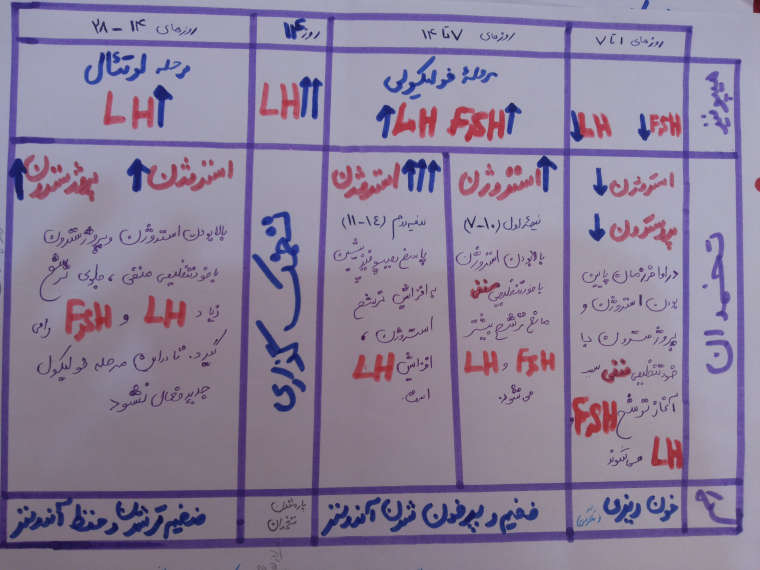 روزهای ۱ تا ۷
روزهای ۷ تا ۱۴
روز ۱۴
روزهای ۱۴ - ۲۸
هیپوفیز
↓FSH ↓LH
مرحلهٔ فولیکولی
↑FSH LH↑
LH↑↑
مرحله لوتئال
LH↑
تخمدان
استروژن↓
پروژسترون↓
در اواخر زمان پایین
بودن استروژن و
پروژسترون با
خودتنظیمی منفی سبب
آغاز ترشح FSH
LH می‌شوند
استروژن↑
نیمهٔ اول (۷-۱۰)
بالا بودن استروژن
با خودتنظیمی منفی
مانع ترشح بیشتر
FSH و LH
می‌شود.
استروژن↑↑↑
نیمه دوم (۱۴-۱۱)
پاسخ هیپوفیز پیشین
به افزایش ترشح
استروژن،
افزایش LH
است.
تخمک گذاری
استروژن↑ پروژسترون↑
بالا بودن استروژن و پروژسترون
با خودتنظیمی منفی، جلوی ترشح
زیاد LH و FSH را می
گیرد. تا در این مرحله فولیکول
جدید فعال نشود
رحم
خون ریزی
ضخیم و پرخون شدن آندومتر
پاره شدن
تخمدان
ضخیم تر شدن و حفظ آندومتر